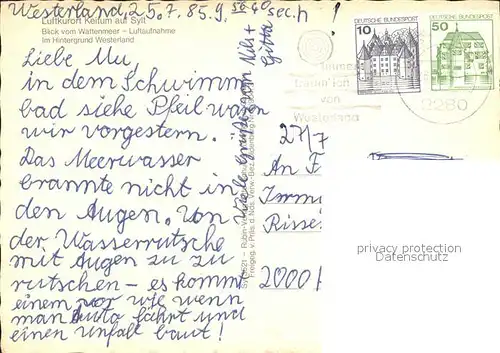 Westerland, 25.7.85. 9.
Luftkurort Keitum auf Sylt
Blick vom Wattenmeer – Luftaufnahme
Im Hintergrund Westerland
Liebe Mu,
in dem Schwimm
bad siehe Pfeil waren
wir vorgestern.
Das Meerwasser
brannte nicht in
den Augen. Von
der Wasserrutsche
mit Augen zu zu
rutschen – es kommt
einem vor wie wenn
man Auto fährt und
einen Unfall baut!
Viele Grüße von Nils +
Gitta
DEUTSCHE BUNDESPOST
10
DEUTSCHE BUNDESPOST
50
von
Westerland
2280
27/7
An F
Imm
Risse
2000
privacy protection
Datenschutz